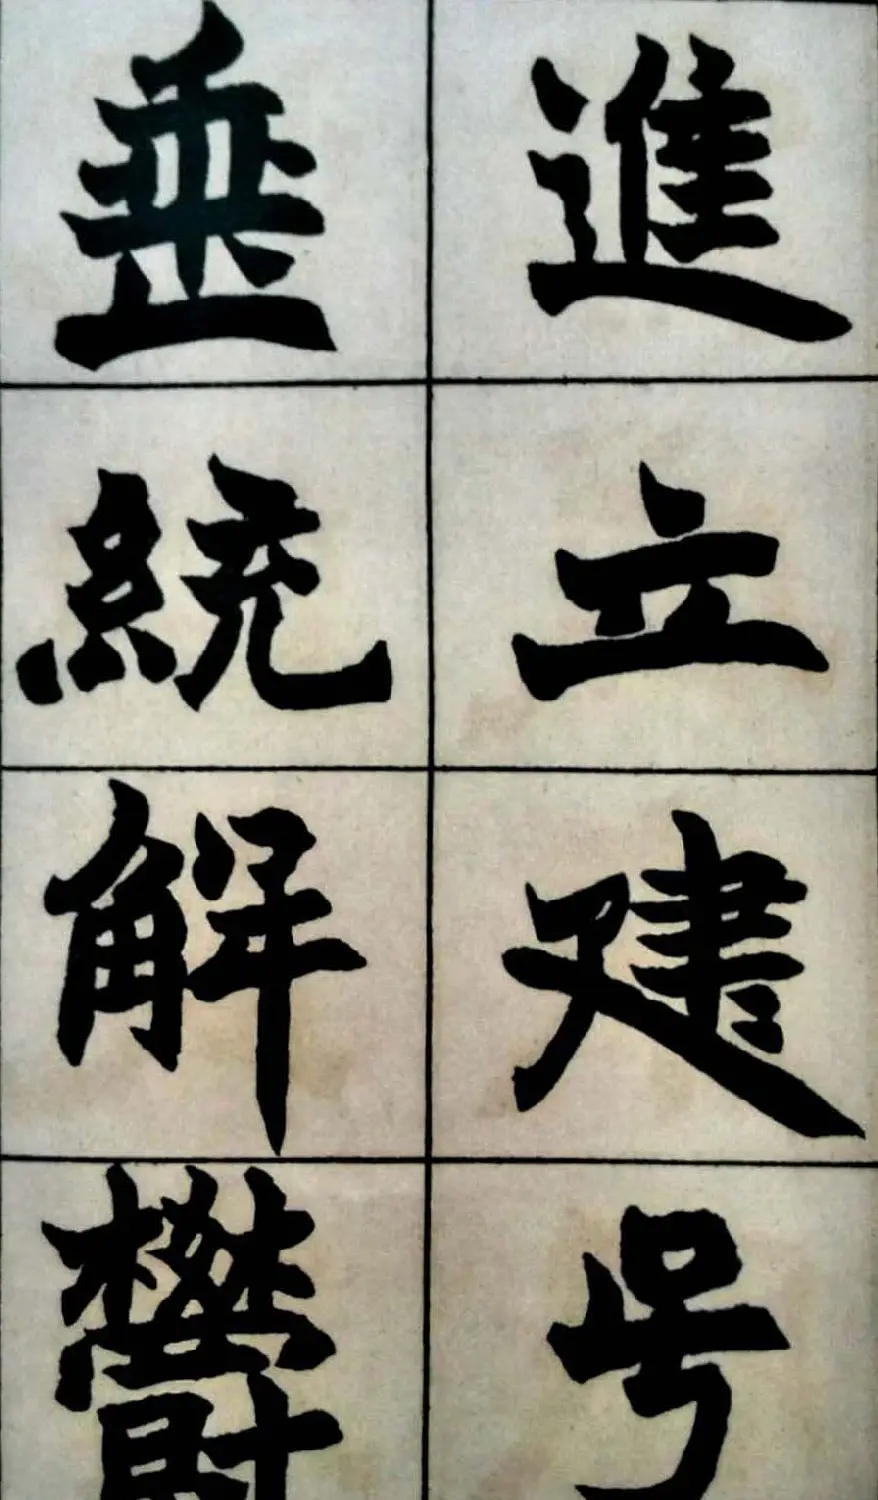 進立建号
垂統解鬱